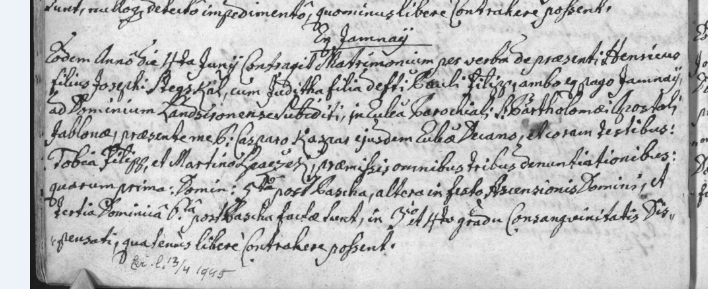 sunt, nulloq; detecto impedimento, quominus libere Contrahere possent.
Ex Jamnaÿ
Eodem Anno Die 4ta Junÿ Contraxit Matrimonium per verba de præsenti Henricus
filius Josephi cum Juditha filia defti Pauli ambo ex pago Jamnaÿ
ad Dominium Landskronense Subditi, in Eccleã Parochiali S. Bartholomæi Apostoli
Jablonæ, præsente me Casparo ejusdem Eccleæ Decano, et coram testibus:
Tobia et Martino præmissis omnibus tribus denuntiationibus:
quarum prima: Domin: 5ta post Pascha, altera in festo Ascensionis Domini, et
tertia Dominica 6ta post Pascha factæ sunt, in 3io et 4to gradu Consanguinitatis Dis-
pensati, quatenus libere Contrahere possent.
13/4 1945